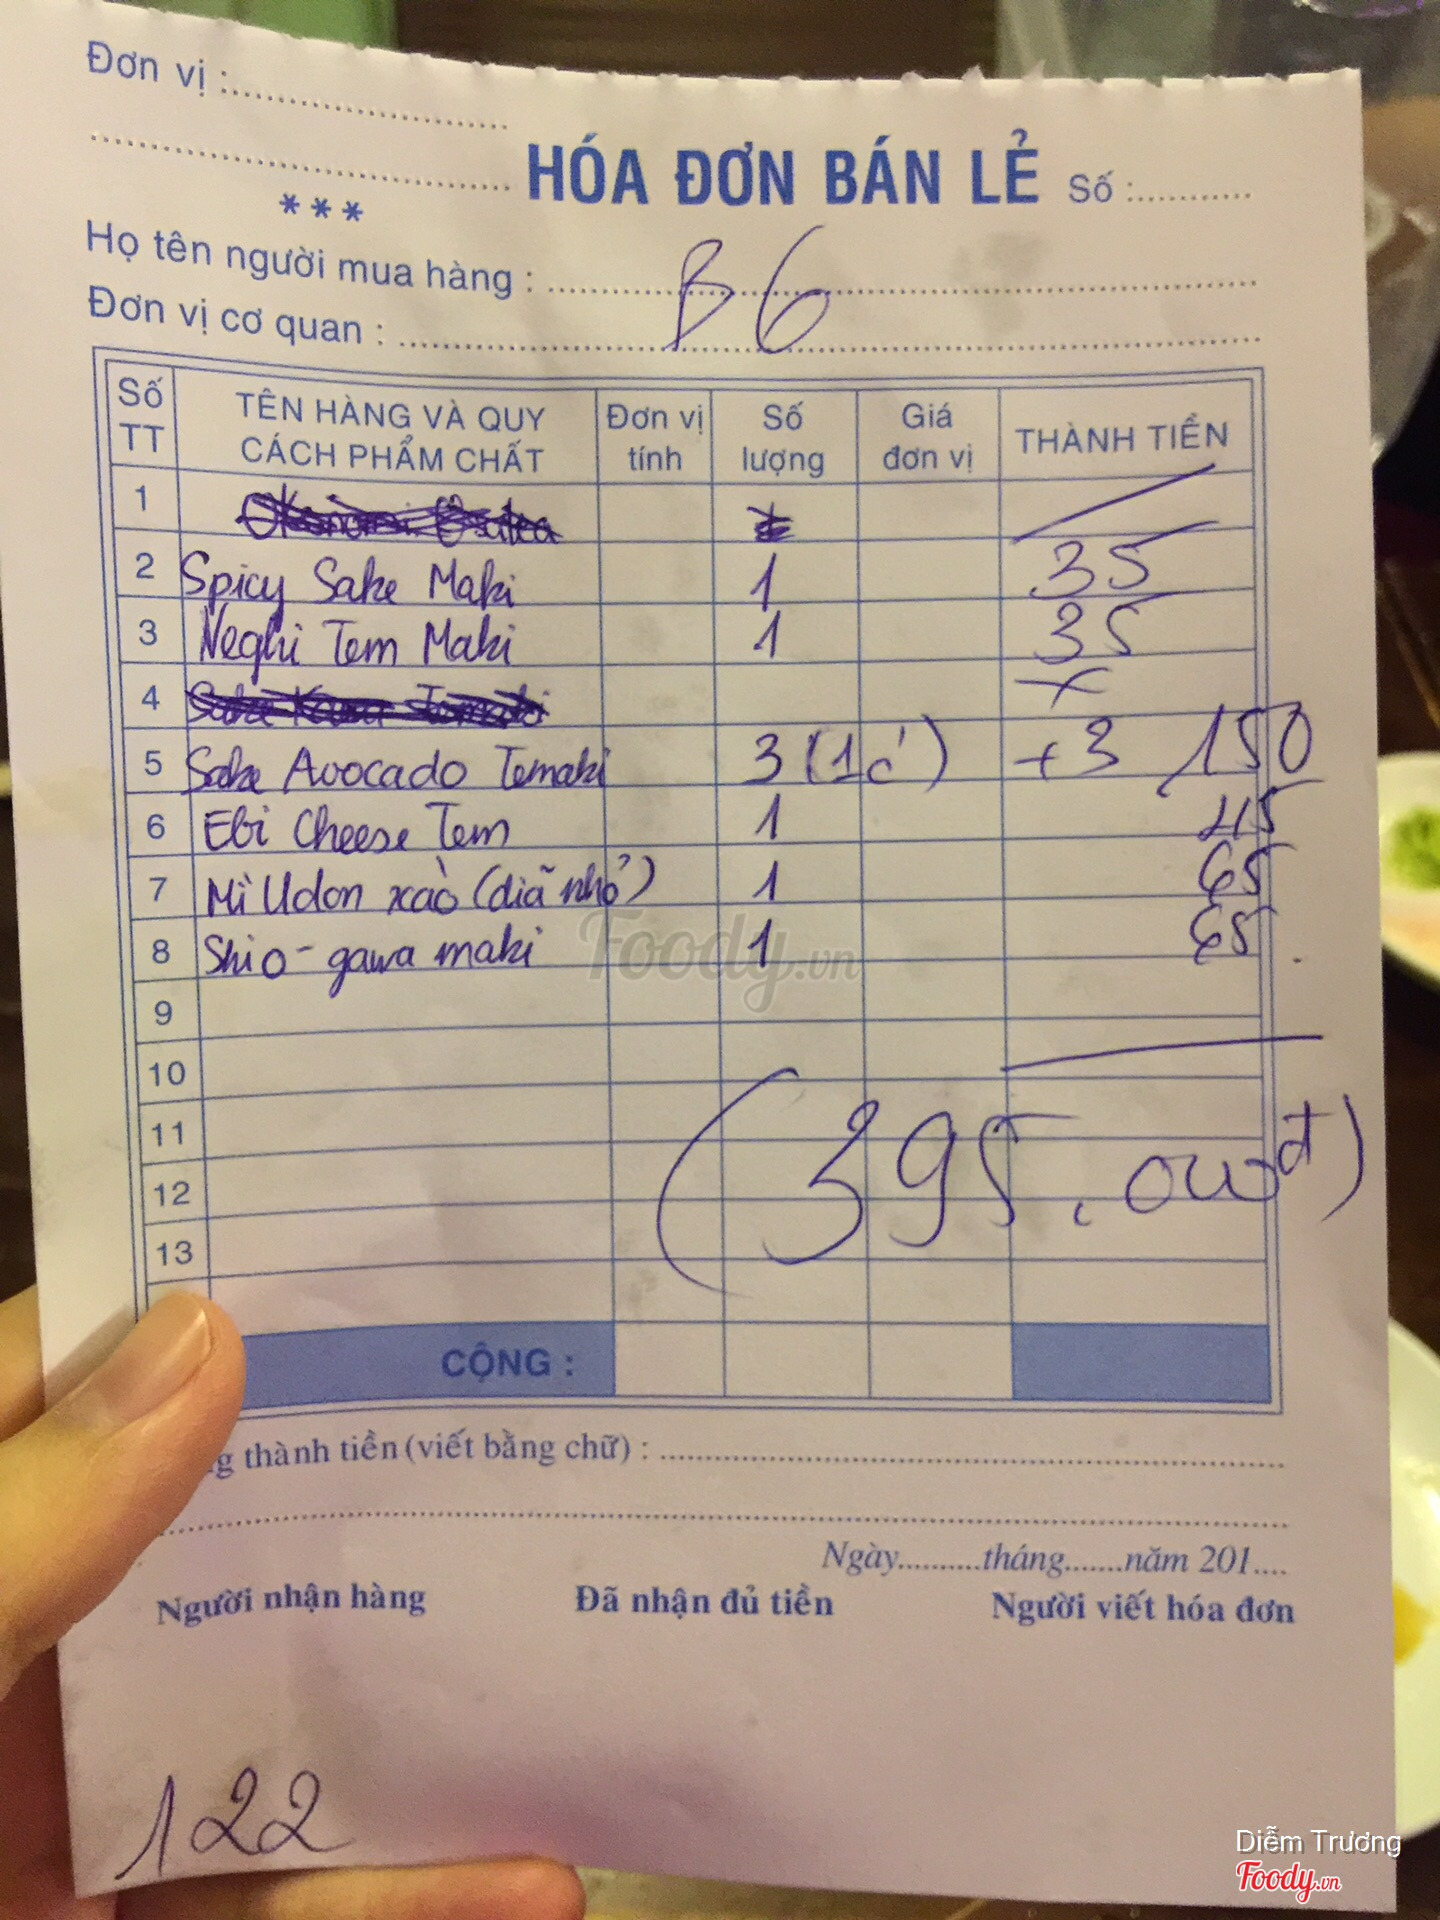 Đơn vị :
HÓA ĐƠN BÁN LẺ Số :
***
Họ tên người mua hàng : B6
Đơn vị cơ quan :
Số TT TÊN HÀNG VÀ QUY CÁCH PHẨM CHẤT Đơn vị tính Số lượng Giá đơn vị THÀNH TIỀN
1
2 Spicy Sake Maki 1 35
3 Neghi Tem Maki 1 35
4
5 Sake Avocado Temaki 3 (1 ) +3 150
6 Ebi Cheese Tem 1 45
7 Mì Udon xào (diã nhỏ) 1 65
8 Shio-gawa maki 1 65
9
10
11
12
13
(395.000đ)
CỘNG :
thành tiền (viết bằng chữ) :
Ngày..........tháng.......năm 201....
Người nhận hàng Đã nhận đủ tiền Người viết hóa đơn
122
Foody.vn
Diễm Trương
Foody.vn